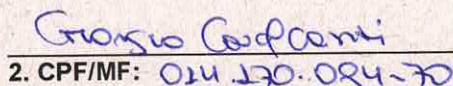 Giorgio Cavalcanti
2. CPF/MF: 014.170.084-70